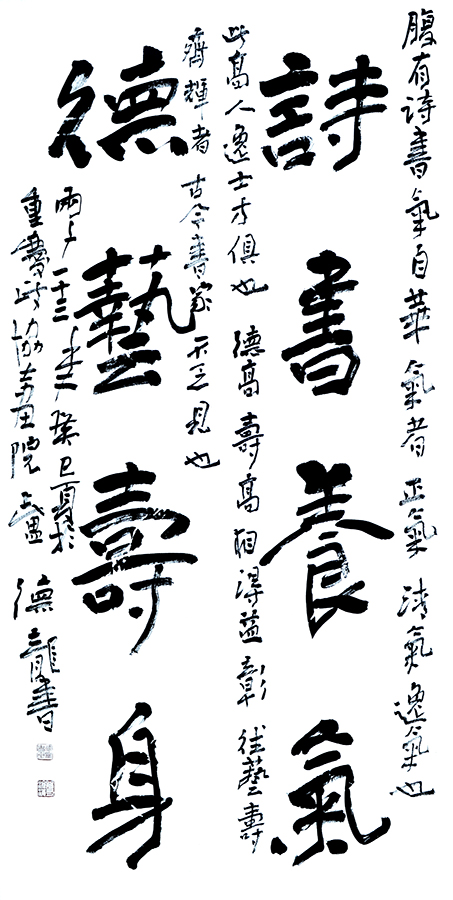 腹有詩書氣自華氣者正氣清氣逸氣也
詩書養氣
此高人逸士才俱也德高壽高相得益彰往藝壽
齊輝者古今書家不乏見也
德藝壽身
二十三年癸巳夏於
重慶時協畫院
德龍書